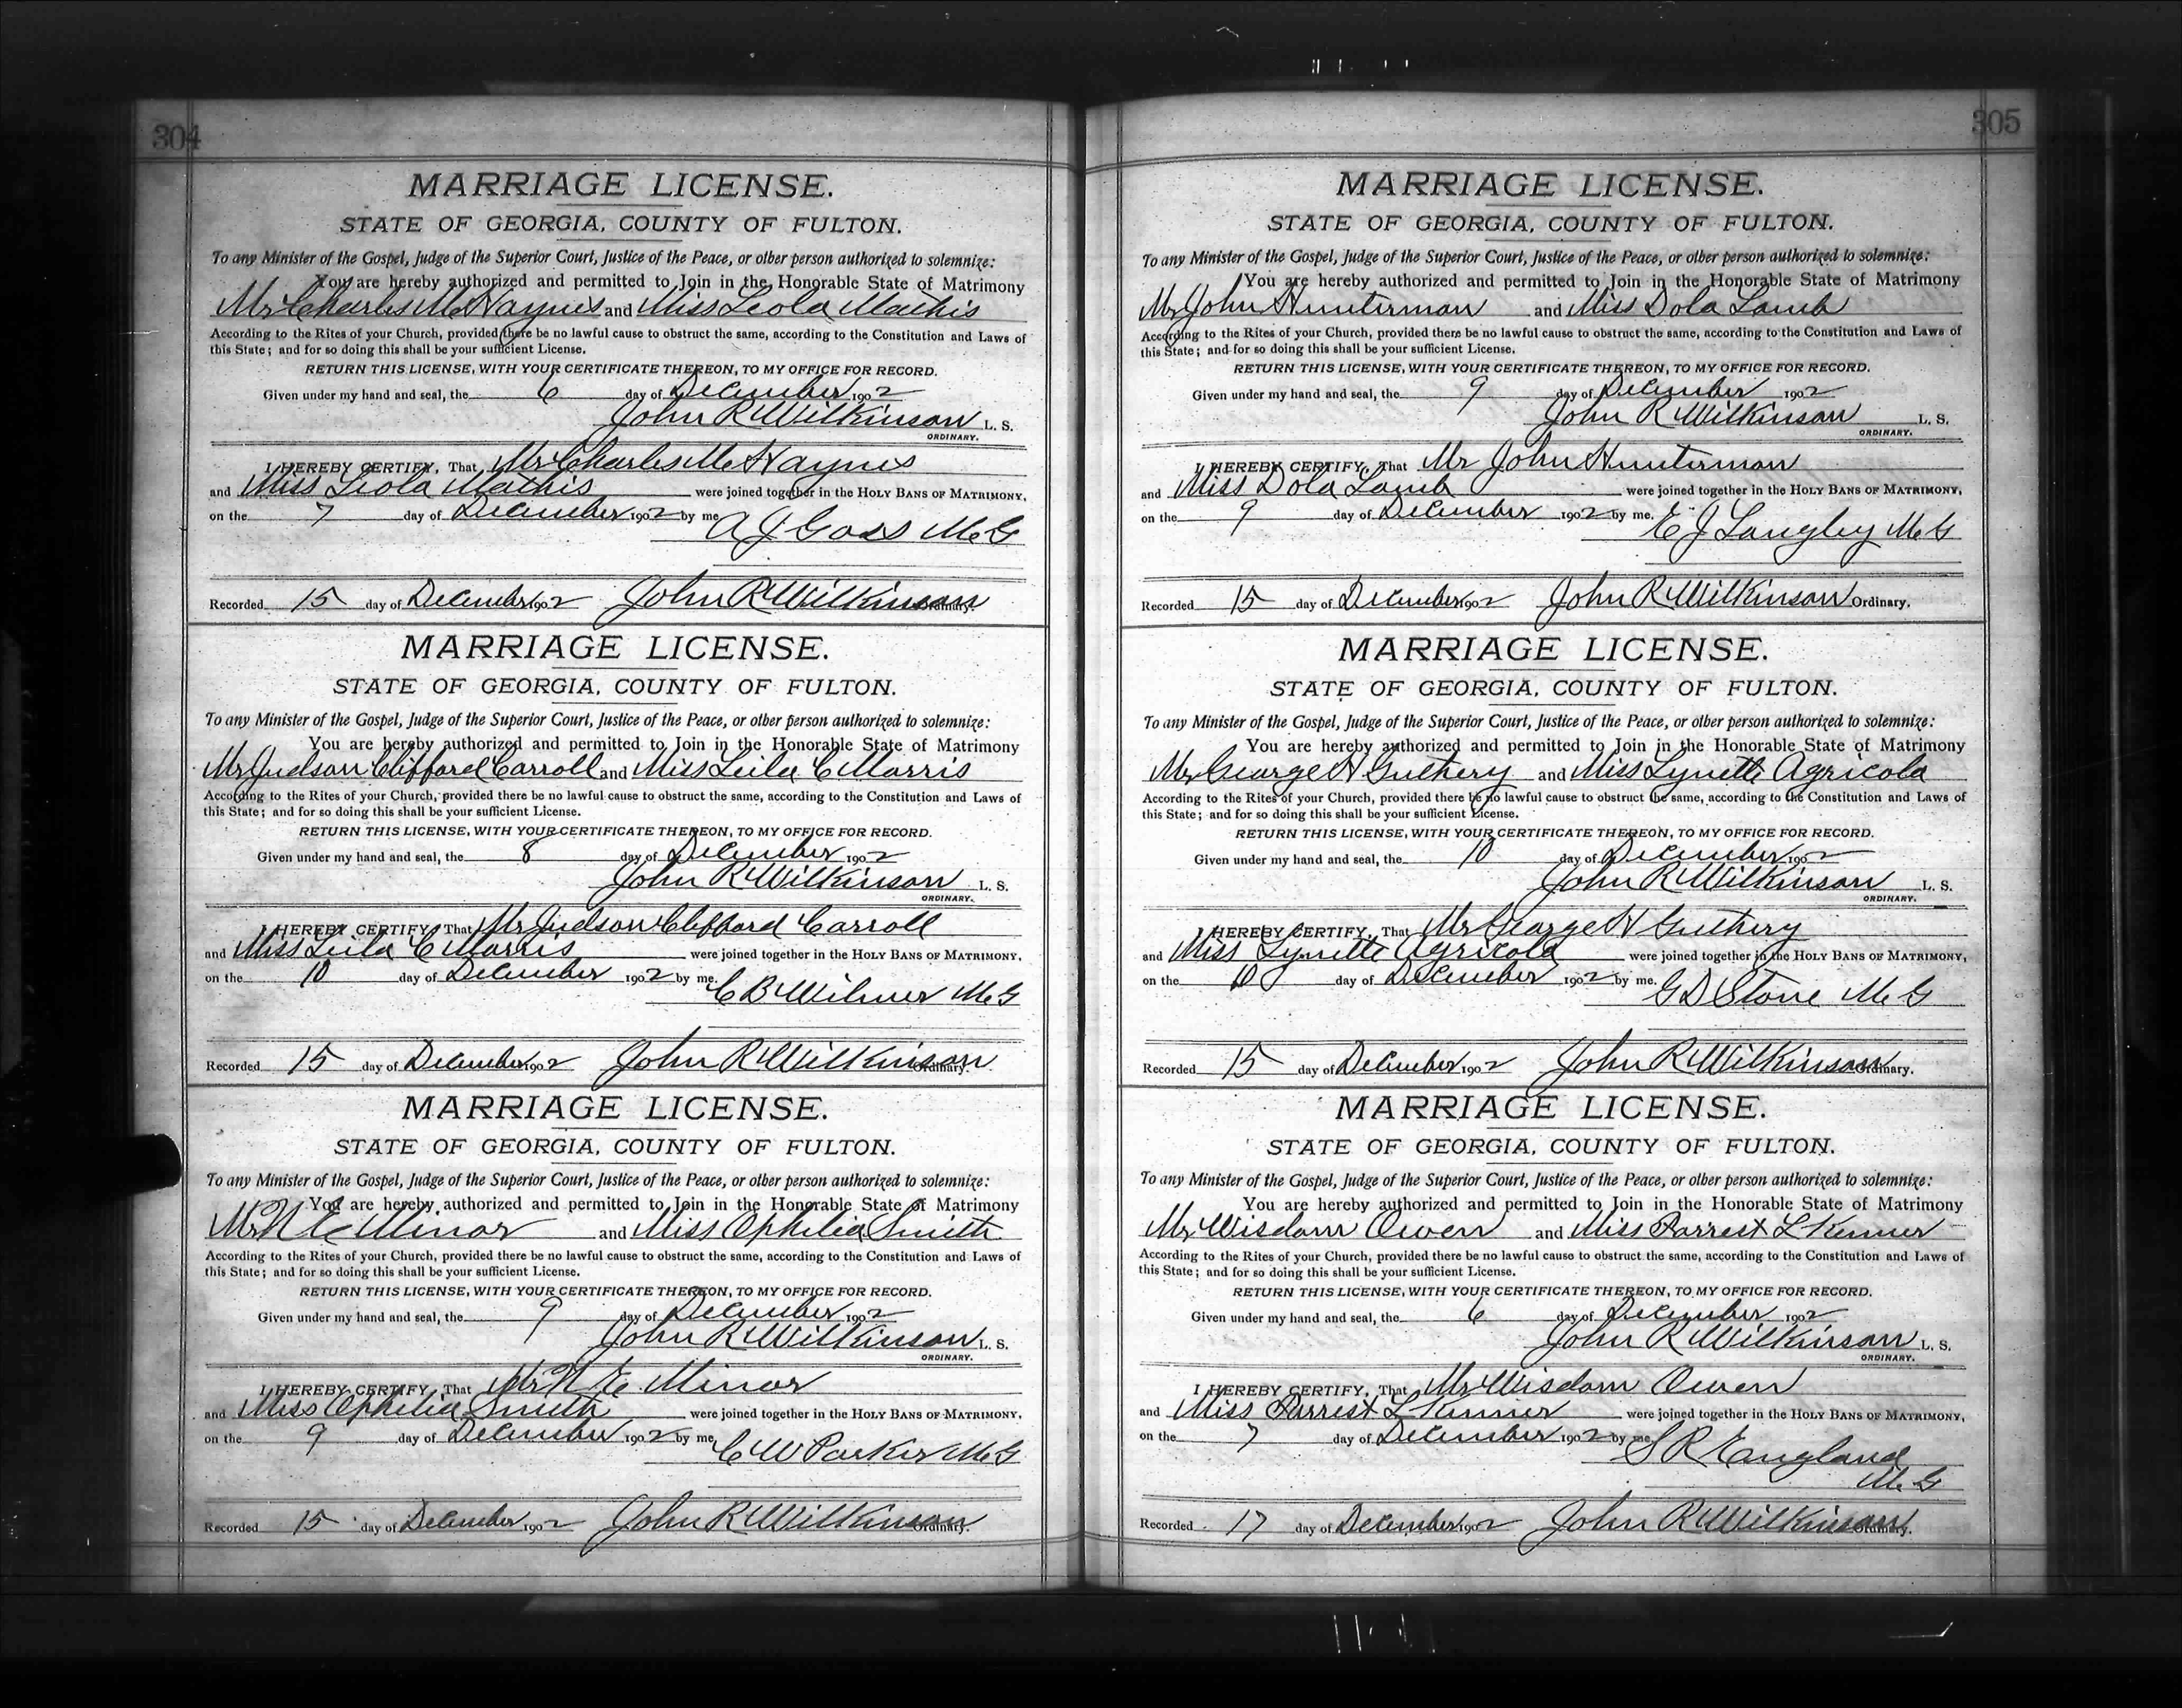 304
MARRIAGE LICENSE.
STATE OF GEORGIA, COUNTY OF FULTON.
To any Minister of the Gospel, Judge of the Superior Court, Justice of the Peace, or other person authorized to solemnize:
You are hereby authorized and permitted to Join in the Honorable State of Matrimony
Mr Charles M Haynes and Miss Leola Mathis
According to the Rites of your Church, provided there be no lawful cause to obstruct the same, according to the Constitution and Laws of
this State; and for so doing this shall be your sufficient License.
RETURN THIS LICENSE, WITH YOUR CERTIFICATE THEREON, TO MY OFFICE FOR RECORD.
Given under my hand and seal, the 6 day of December 1902
John R Wilkinson L. S.
ORDINARY.
I HEREBY CERTIFY, That Mr Charles M Haynes
and Miss Leola Mathis were joined together in the HOLY BANS OF MATRIMONY,
on the 7 day of December 1902 by me A J Goss M G
Recorded 15 day of December 1902 John R Wilkinson Ordinary.
MARRIAGE LICENSE.
STATE OF GEORGIA, COUNTY OF FULTON.
To any Minister of the Gospel, Judge of the Superior Court, Justice of the Peace, or other person authorized to solemnize:
You are hereby authorized and permitted to Join in the Honorable State of Matrimony
Mr Judson Clifford Carroll and Miss Leila C Morris
According to the Rites of your Church, provided there be no lawful cause to obstruct the same, according to the Constitution and Laws of
this State; and for so doing this shall be your sufficient License.
RETURN THIS LICENSE, WITH YOUR CERTIFICATE THEREON, TO MY OFFICE FOR RECORD.
Given under my hand and seal, the 8 day of December 1902
John R Wilkinson L. S.
ORDINARY.
I HEREBY CERTIFY, That Mr Judson Clifford Carroll
and Miss Leila C Morris were joined together in the HOLY BANS OF MATRIMONY,
on the 10 day of December 1902 by me. C B Wilmer M G
Recorded 15 day of December 1902 John R Wilkinson Ordinary.
MARRIAGE LICENSE.
STATE OF GEORGIA, COUNTY OF FULTON.
To any Minister of the Gospel, Judge of the Superior Court, Justice of the Peace, or other person authorized to solemnize:
You are hereby authorized and permitted to Join in the Honorable State of Matrimony
Mr N E Minor and Miss Ophelia Smith
According to the Rites of your Church, provided there be no lawful cause to obstruct the same, according to the Constitution and Laws of
this State; and for so doing this shall be your sufficient License.
RETURN THIS LICENSE, WITH YOUR CERTIFICATE THEREON, TO MY OFFICE FOR RECORD.
Given under my hand and seal, the 9 day of December 1902
John R Wilkinson L. S.
ORDINARY.
I HEREBY CERTIFY, That Mr N E. Minor
and Miss Ophelia Smith were joined together in the HOLY BANS OF MATRIMONY,
on the 9 day of December 1902 by me C W Parker M G
Recorded 15 day of December 1902 John R Wilkinson Ordinary.
305
MARRIAGE LICENSE.
STATE OF GEORGIA, COUNTY OF FULTON.
To any Minister of the Gospel, Judge of the Superior Court, Justice of the Peace, or other person authorized to solemnize:
You are hereby authorized and permitted to Join in the Honorable State of Matrimony
Mr John Hunterman and Miss Dola Lamb
According to the Rites of your Church, provided there be no lawful cause to obstruct the same, according to the Constitution and Laws of
this State; and for so doing this shall be your sufficient License.
RETURN THIS LICENSE, WITH YOUR CERTIFICATE THEREON, TO MY OFFICE FOR RECORD.
Given under my hand and seal, the 9 day of December 1902
John R Wilkinson L. S.
ORDINARY.
I HEREBY CERTIFY, That Mr John Hunterman
and Miss Dola Lamb were joined together in the HOLY BANS OF MATRIMONY,
on the 9 day of December 1902 by me. E J Langley M G
Recorded 15 day of December 1902 John R Wilkinson Ordinary.
MARRIAGE LICENSE.
STATE OF GEORGIA, COUNTY OF FULTON.
To any Minister of the Gospel, Judge of the Superior Court, Justice of the Peace, or other person authorized to solemnize:
You are hereby authorized and permitted to Join in the Honorable State of Matrimony
Mr George H Guthery and Miss Lynette Agricola
According to the Rites of your Church, provided there be no lawful cause to obstruct the same, according to the Constitution and Laws of
this State; and for so doing this shall be your sufficient License.
RETURN THIS LICENSE, WITH YOUR CERTIFICATE THEREON, TO MY OFFICE FOR RECORD.
Given under my hand and seal, the 10 day of December 1902
John R Wilkinson L. S.
ORDINARY.
I HEREBY CERTIFY, That Mr George H Guthery
and Miss Lynette Agricola were joined together in the HOLY BANS OF MATRIMONY,
on the 10 day of December 1902 by me. G D Stone M G
Recorded 15 day of December 1902 John R Wilkinson Ordinary.
MARRIAGE LICENSE.
STATE OF GEORGIA, COUNTY OF FULTON.
To any Minister of the Gospel, Judge of the Superior Court, Justice of the Peace, or other person authorized to solemnize:
You are hereby authorized and permitted to Join in the Honorable State of Matrimony
Mr Wisdom Owen and Miss Forrest L Kenner
According to the Rites of your Church, provided there be no lawful cause to obstruct the same, according to the Constitution and Laws of
this State; and for so doing this shall be your sufficient License.
RETURN THIS LICENSE, WITH YOUR CERTIFICATE THEREON, TO MY OFFICE FOR RECORD.
Given under my hand and seal, the 6 day of December 1902
John R Wilkinson L. S.
ORDINARY.
I HEREBY CERTIFY, That Mr Wisdom Owen
and Miss Forrest L Kenner were joined together in the HOLY BANS OF MATRIMONY,
on the 7 day of December 1902 by me S R England
M G
Recorded 17 day of December 1902 John R Wilkinson Ordinary.